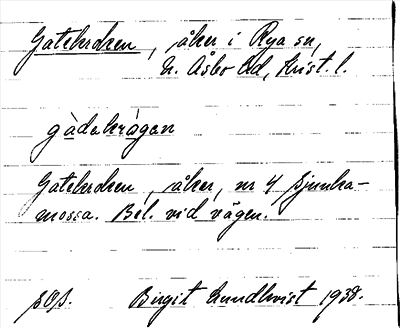 Gatekroken, åker i Rya sn,
N. Åsbo hd, Krist. l.
gàdekrågen
Gatekroken, åker, nr 4 Sjunka-
mossa. Bel. vid vägen.
Birgit Lundkvist 1938.